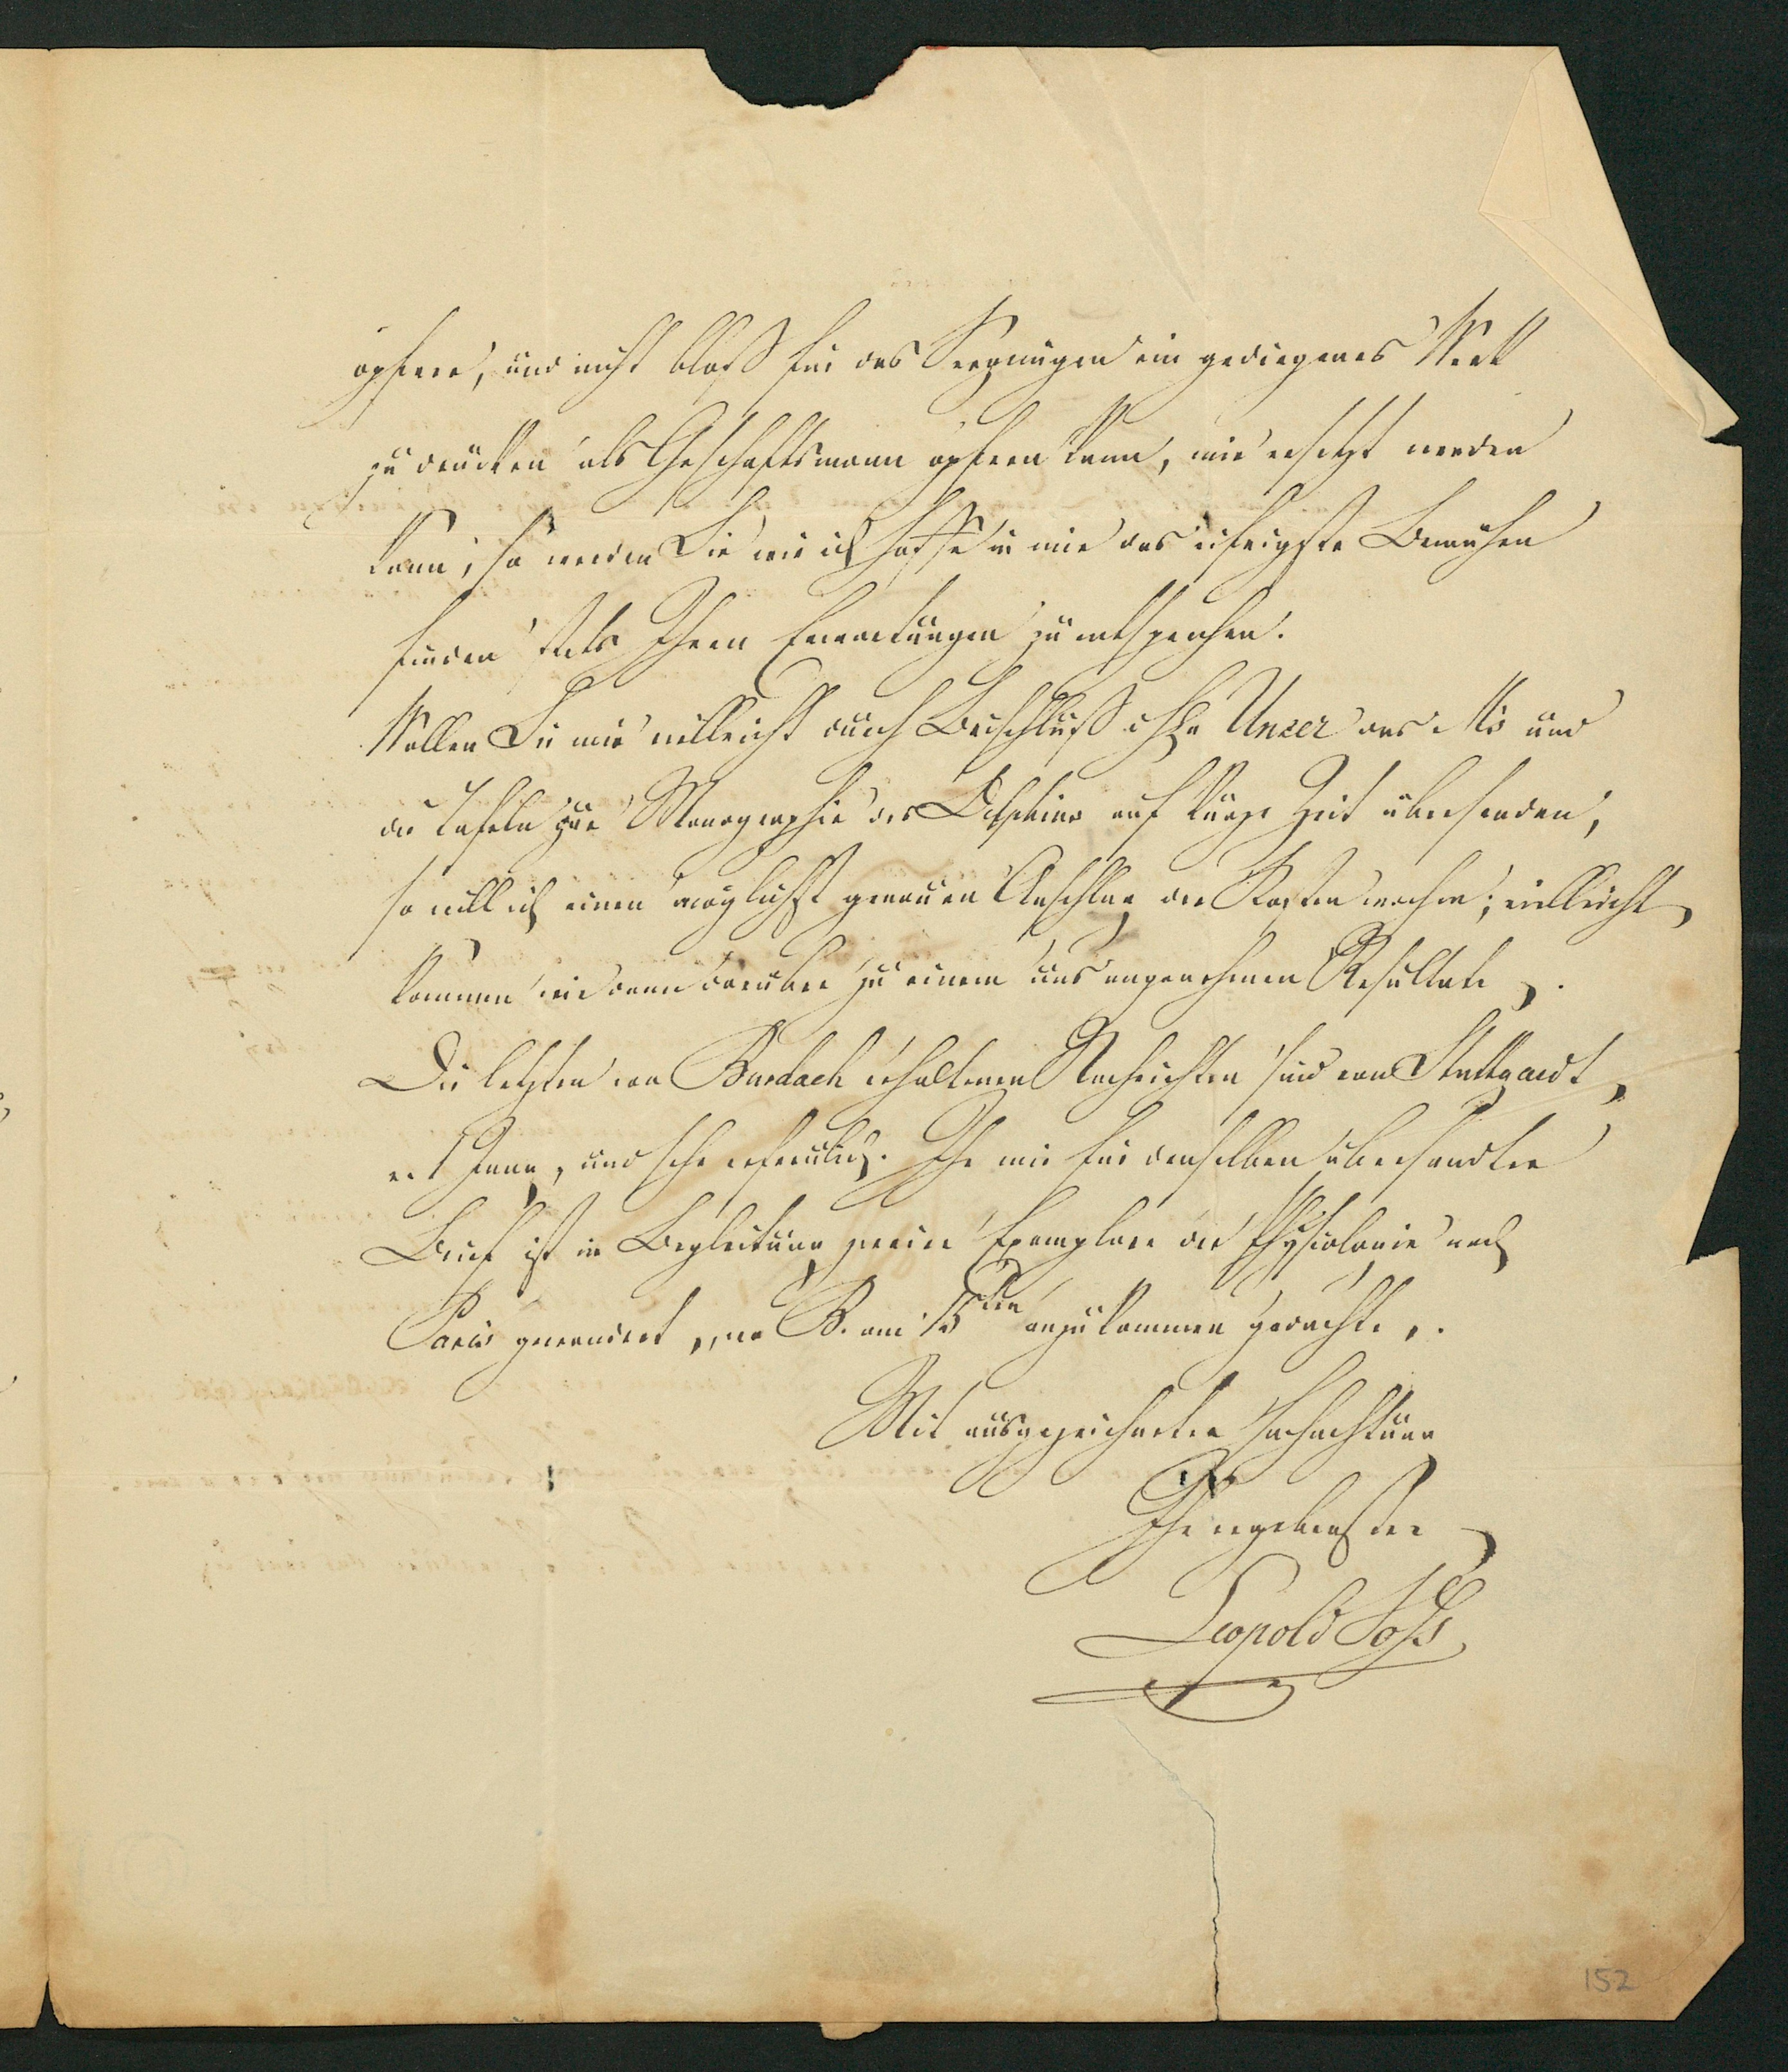 opfere, und nicht bloß für das Vergnügen ein gediegenes Werk
zu drucken als Geschäftsmann opfern kann, mir ersetzt werden
kann, so werden Sie wie ich hoffe in mir das eifrigste Bemühen
finden stets Ihren Erwartungen zu entsprechen.
Wollen Sie mir vielleicht durch Beischluß Unzer das Ms und
die Tafeln zur Monographie des Delphins auf kurze Zeit übersenden,
so will ich einen möglichst genauen Anschlag der Kosten machen; vielleicht
kommen wir dann darüber zu einem uns angenehmen Resultate.
Die letzten von Burdach erhaltenen Nachrichten sind von Stuttgardt,
Juny, und sehr erfreulich. Ihr mir für denselben übersandter
Brief ist in Begleitung zweier Exemplare der Physiologie nach
Paris gewandert, wo B. am 15ten anzukommen gedachte.
Mit ausgezeichneter Hochachtung
Ihr ergebenster
Leopold Voß
152